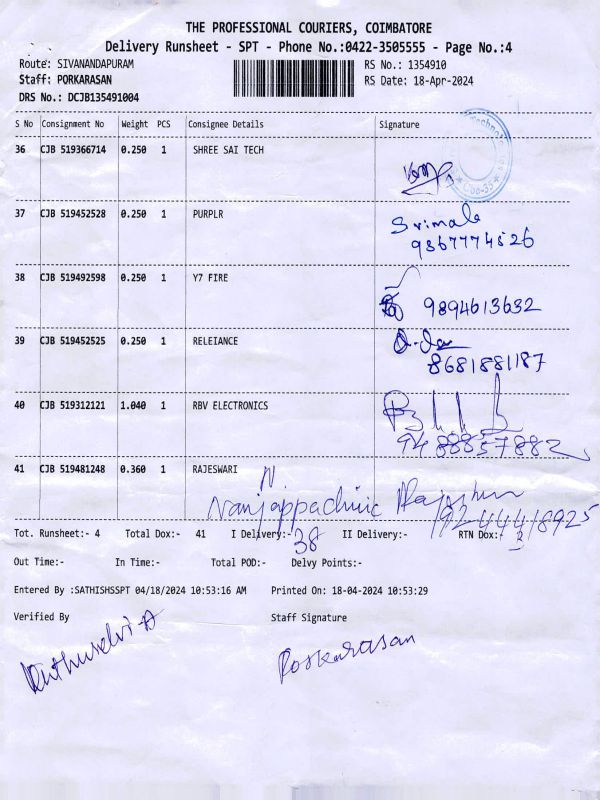 THE PROFESSIONAL COURIERS, COIMBATORE
Delivery Runsheet - SPT - Phone No.:0422-3505555 - Page No.:4
Route: SIVANANDAPURAM RS No.: 1354910
Staff: PORKARASAN RS Date: 18-Apr-2024
DRS No.: DCJB135491004
S No Consignment No Weight PCS Consignee Details Signature
36 CJB 519366714 0.250 1 SHREE SAI TECH
37 CJB 519452528 0.250 1 PURPLR Srimala
9367774526
38 CJB 519492598 0.250 1 Y7 FIRE
9894613632
39 CJB 519452525 0.250 1 RELEIANCE
8681881187
40 CJB 519312121 1.040 1 RBV ELECTRONICS
9488857882
41 CJB 519481248 0.360 1 RAJESWARI N
Tot. Runsheet:- 4 Total Dox:- 41 I Delivery:- 38 II Delivery:- RTN Dox:-
Out Time:- In Time:- Total POD:- Delvy Points:-
Entered By :SATHISHSSPT 04/18/2024 10:53:16 AM Printed On: 18-04-2024 10:53:29
Verified By Staff Signature
Porkarasan